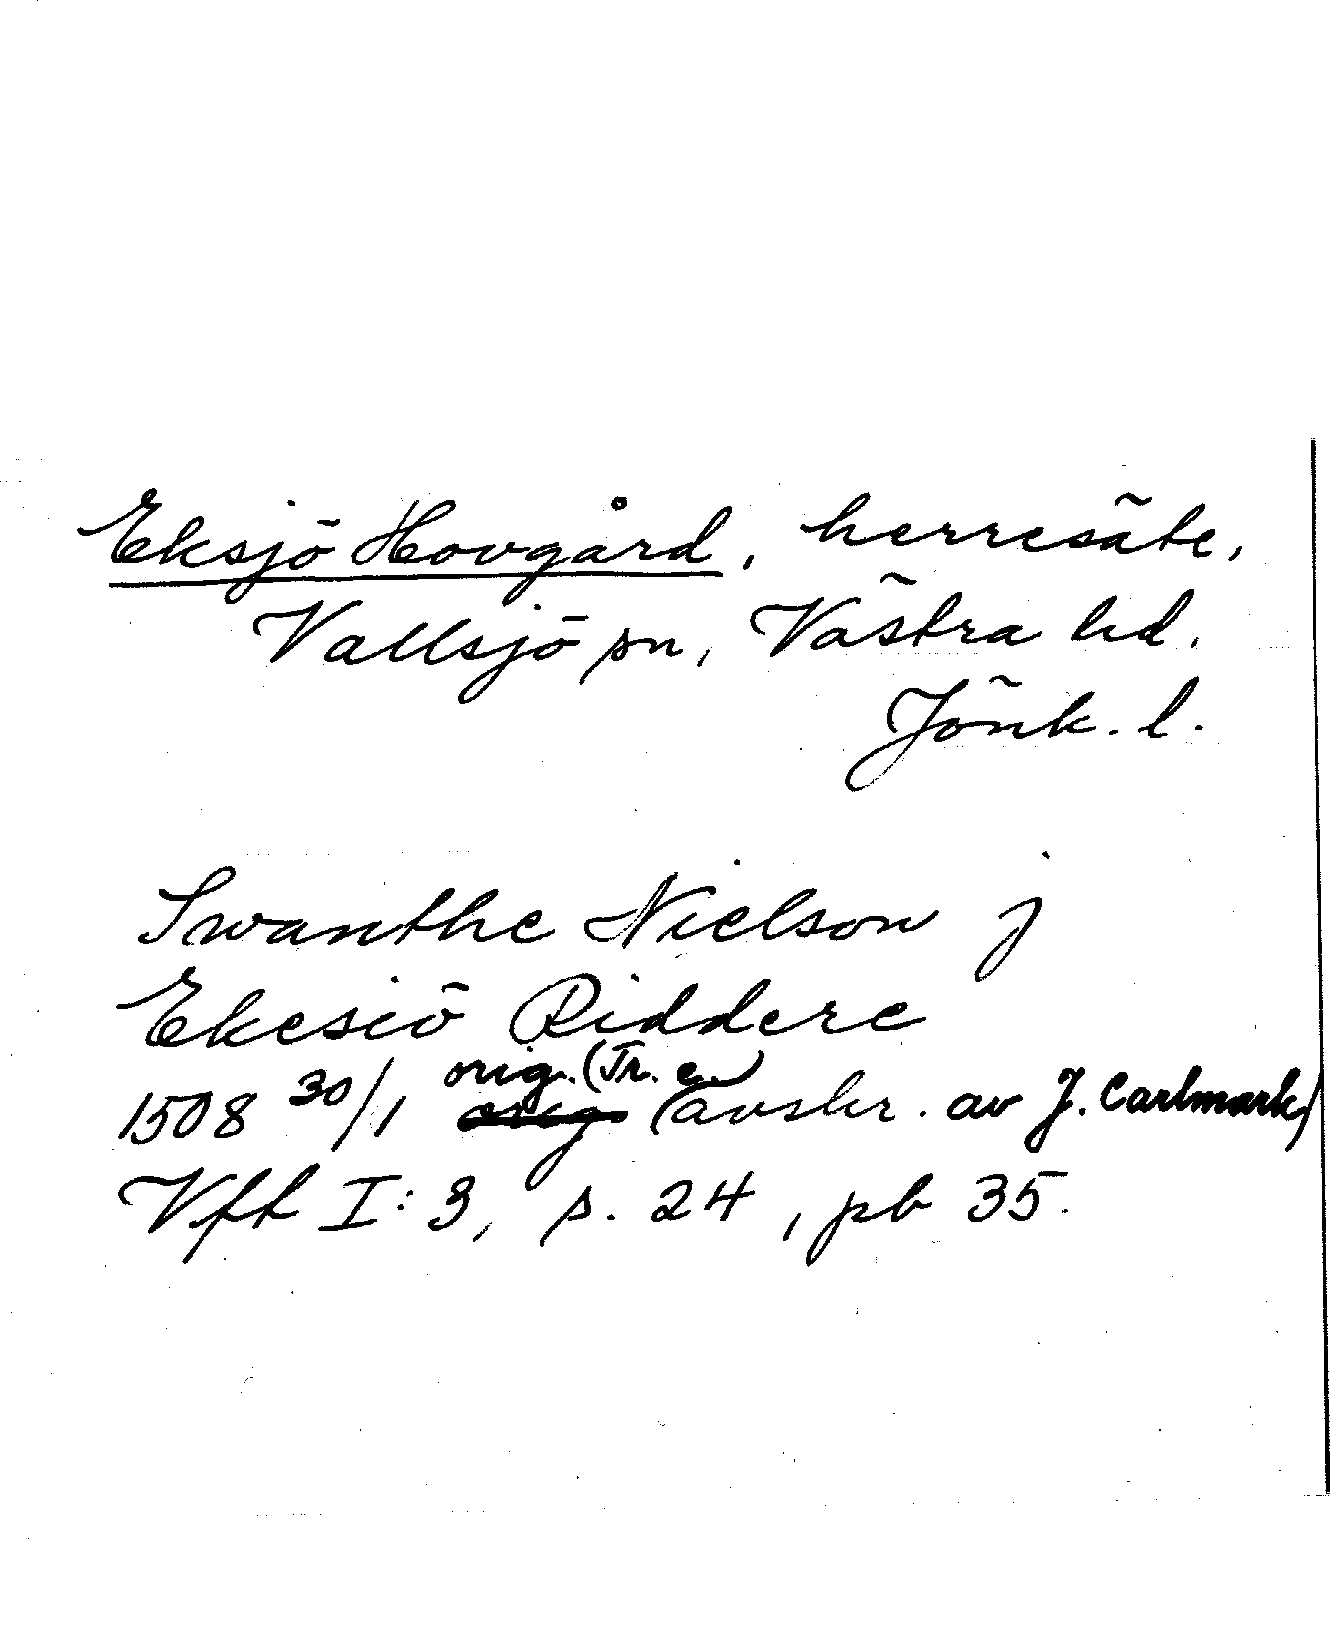 Eksjö Hovgård, herresäte,
Vallsjö sn, Västra hd.
Jönk. l.
Swanthe Nielson j
Ekesiö Riddere
orig. (Tr. e.)
1508 30/1 orig (avskr. av J. Carlmark)
Vfh I:3, s. 24, pb 35.